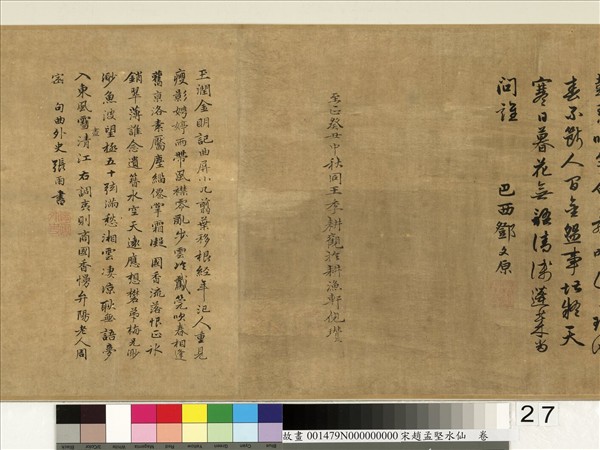 春不斷人間金盌事堪疑天
寒日暮花無語清淺蓬萊當
問誰
巴西鄧文原
至正癸丑中秋同王季耕觀於耕漁軒倪瓚
玉潤金明記曲屏小几翦葉移根經年汜人重見
瘦影娉婷雨帶風襟零亂步雲冷鵝筦吹春相逢
舊京洛素靨塵緇僊掌霜凝國香流落恨正冰
銷翠薄誰念遺簪水空天遠應想礬弟梅兄渺
渺魚波望極五十弦滿愁湘雲淒涼耿無語夢
入東風雪盡清江右詞夷則商國香慢弁陽老人周
密 句曲外史張雨書
27
故畫 001479N000000000 宋趙孟堅水仙 卷